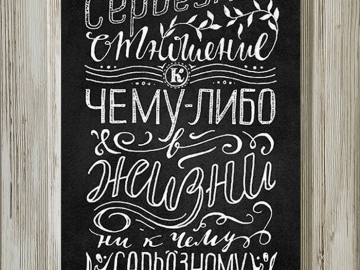 Серьезное
отношение
к
ЧЕМУ-ЛИБО
в
жизни
ни к чему
СЕРЬЁЗНОМУ